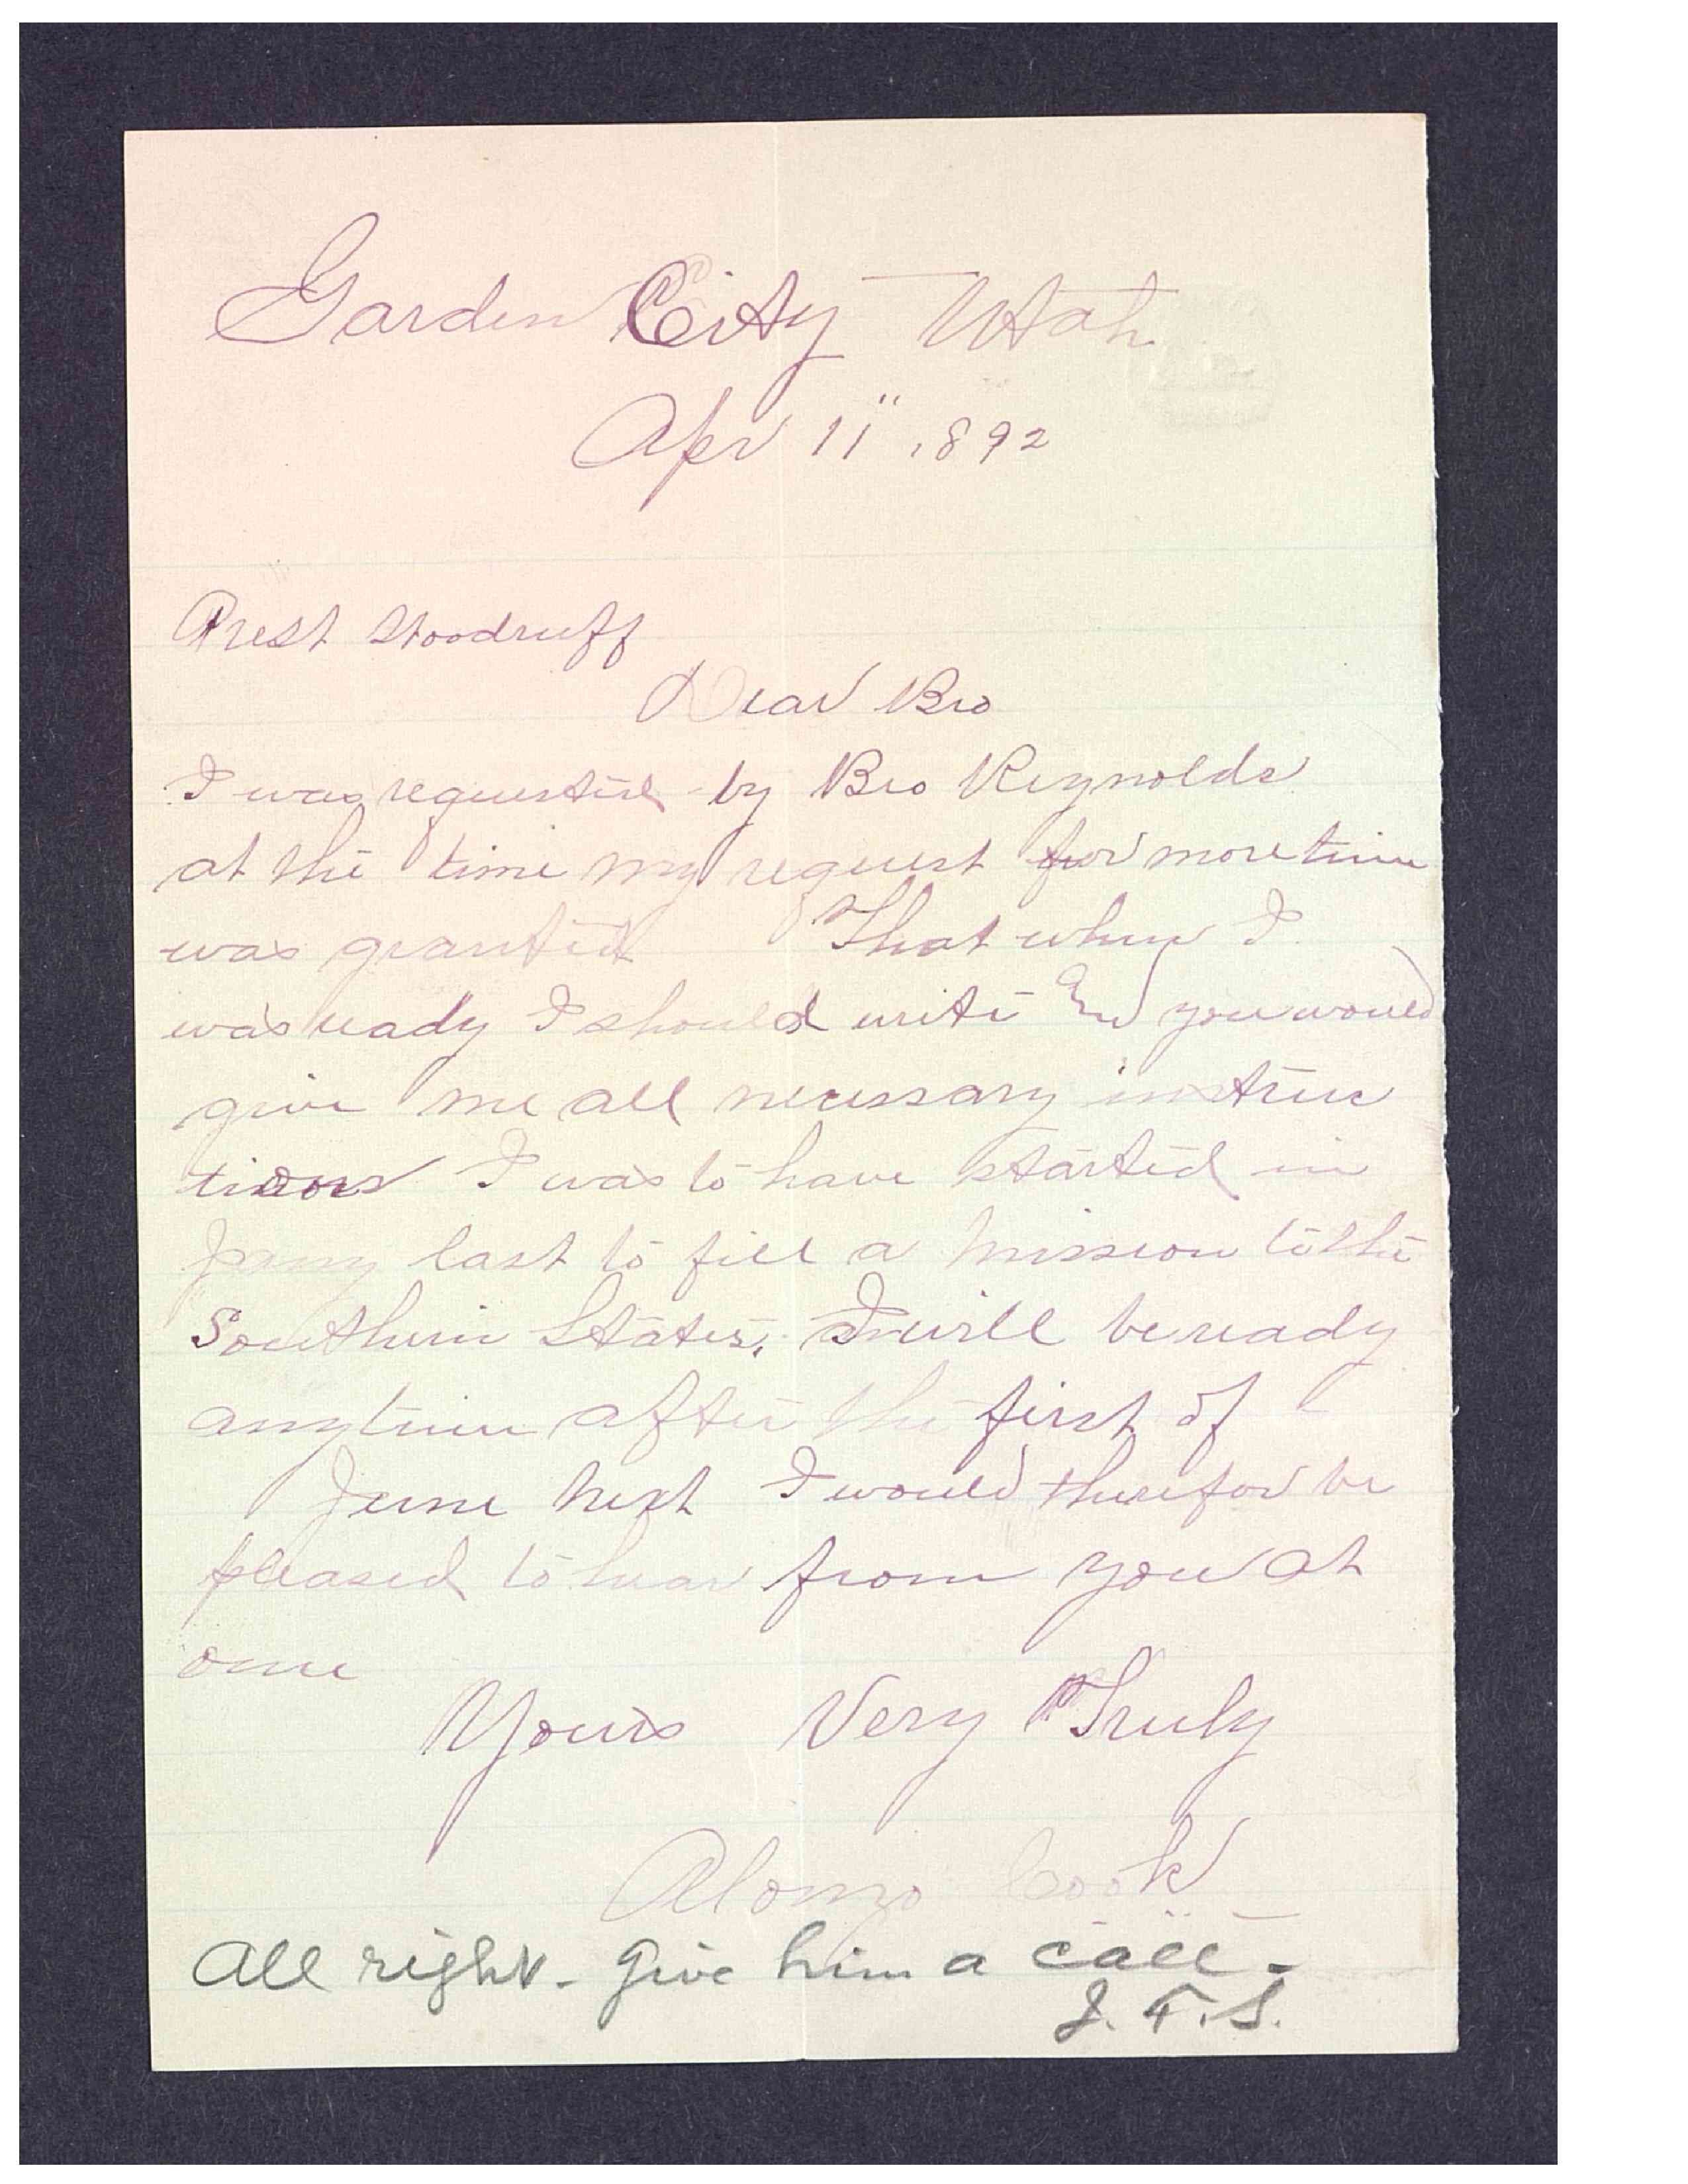 Garden City Utah
Apr 11" 1892
Prest Woodruff
Dear Bro
I was requested by Bro Reynolds
at the time my request for more time
was granted That when I
was ready I should write and you would
give me all necessary instruc
tions I was to have started in
Jany last to fill a mission to the
Southern States, I will be ready
anytime after the first of
June next I would therefor be
pleased to hear from you at
once
Yours Very Truly
Alonzo Cook
All right - Give him a call -
J. F. S.